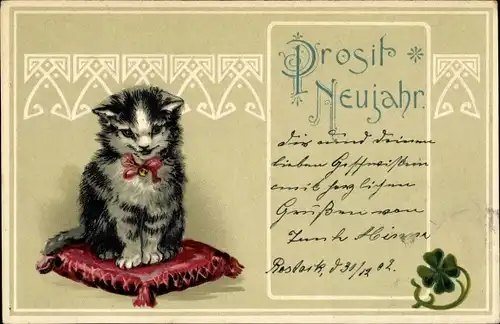 Prosit
Neujahr.
Dir und deinen
lieben Geschwistern
mit herzlichen
Grüßen von
Minna
Rostock, d 31/12 02.